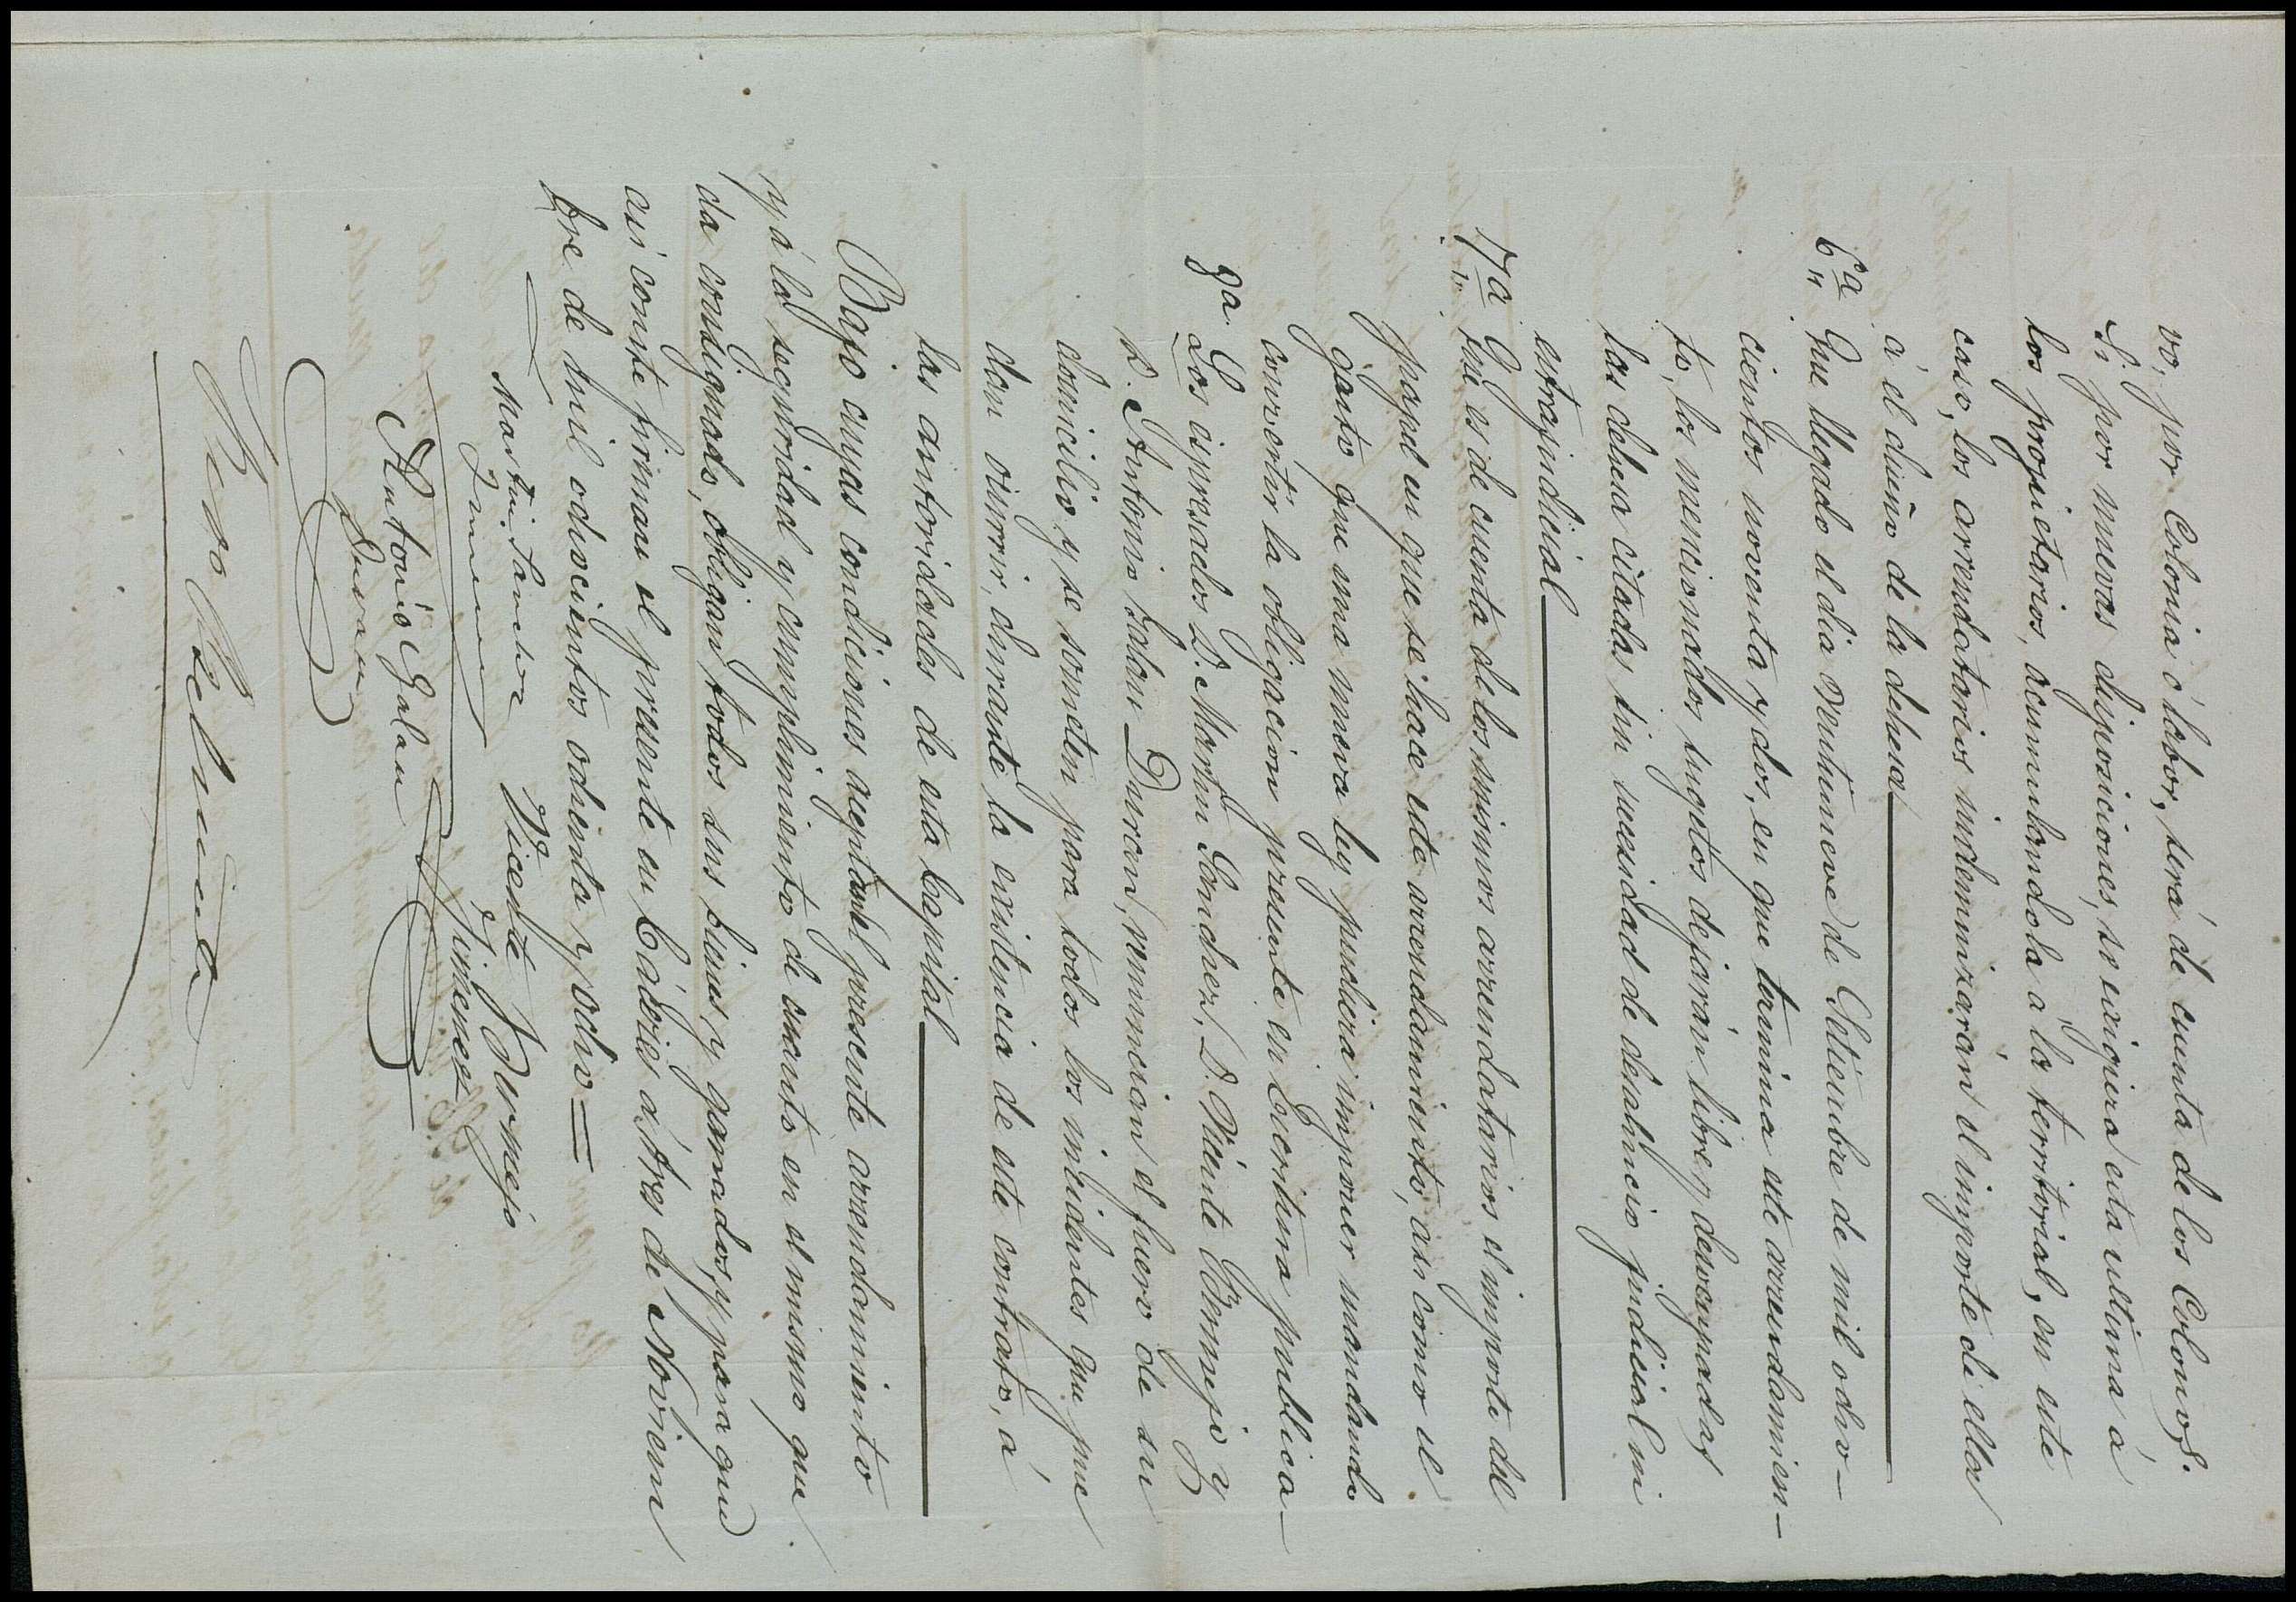 vo, por Colonia ó labor, será de cuenta de los Colonos.
Si por nuevas disposiciones, se exigiera esta ultima á
los propietarios, acumulandola á la territorial, en este
caso, los arrendatarios indemnizarán el importe de ella
á el dueño de la dehesa
6ª Que llegado el dia veintinueve de Setiembre de mil ocho-
cientos noventa y dos, en que termina este arrendamien-
to, los mencionados sugetos dejarán libre y desocupadas
las dehesa citadas sin necesidad de desahucio judicial ni
estrajudicial
7ª Que es de cuenta de los mismos arrendatarios el importe del
papel en que se hace este arrendamiento, asi como el
gasto que una nueva ley pudiera imponer mandando
convertir la obligacion presente en Escritura publica
8ª Los espresados D. Martin Sanchez, D. Vicente Bermejo y
D. Antonio Galan Duran, renuncian el fuero de su
domicilio y se someten para todos los incidentes que pue
dan ocurrir, durante la existencia de este contrato, á
las autoridades de esta Capital
Bajo cuyas condiciones aceptan el presente arrendamiento
y á la seguridad y cumplimiento de cuanto en el mismo que
da consignado, obligan todos sus bienes y ganados, y para que
asi conste firman el presente en Cáceres á tres de Noviem
bre de mil ochocientos ochenta y ocho=
Martin Sanchez Vicente Bermejo
Jimenez Jimenez
Antonio Galan
Duran